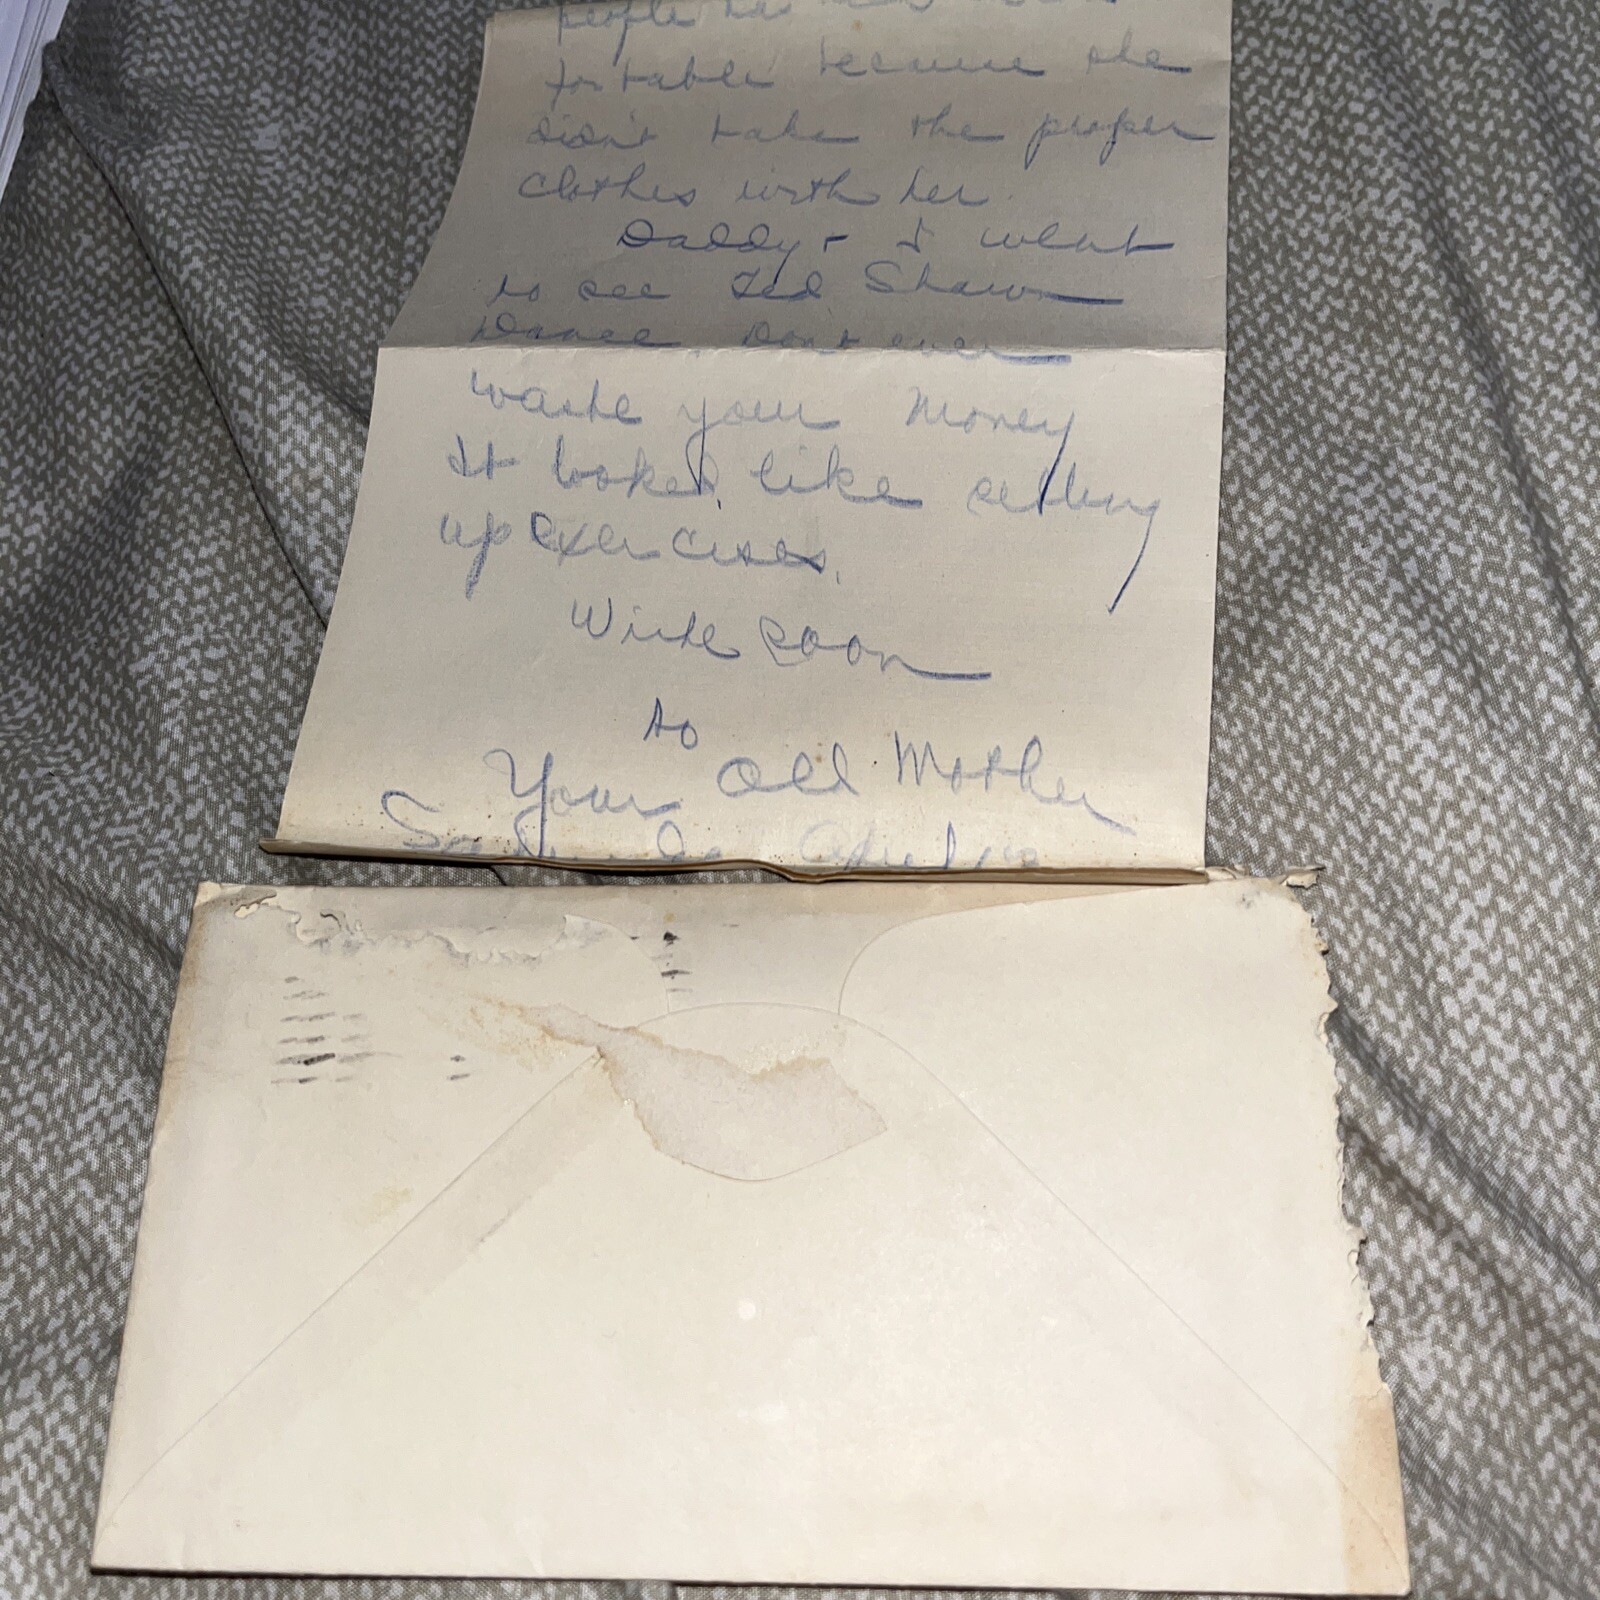 people
fortable because she
didn't take the proper
clothes with her.
Daddy + I went
to see Ted Shawn
Dance. Don't ever
waste your money
It looked like setting
up exercises.
Write soon
to
Your Old Mother